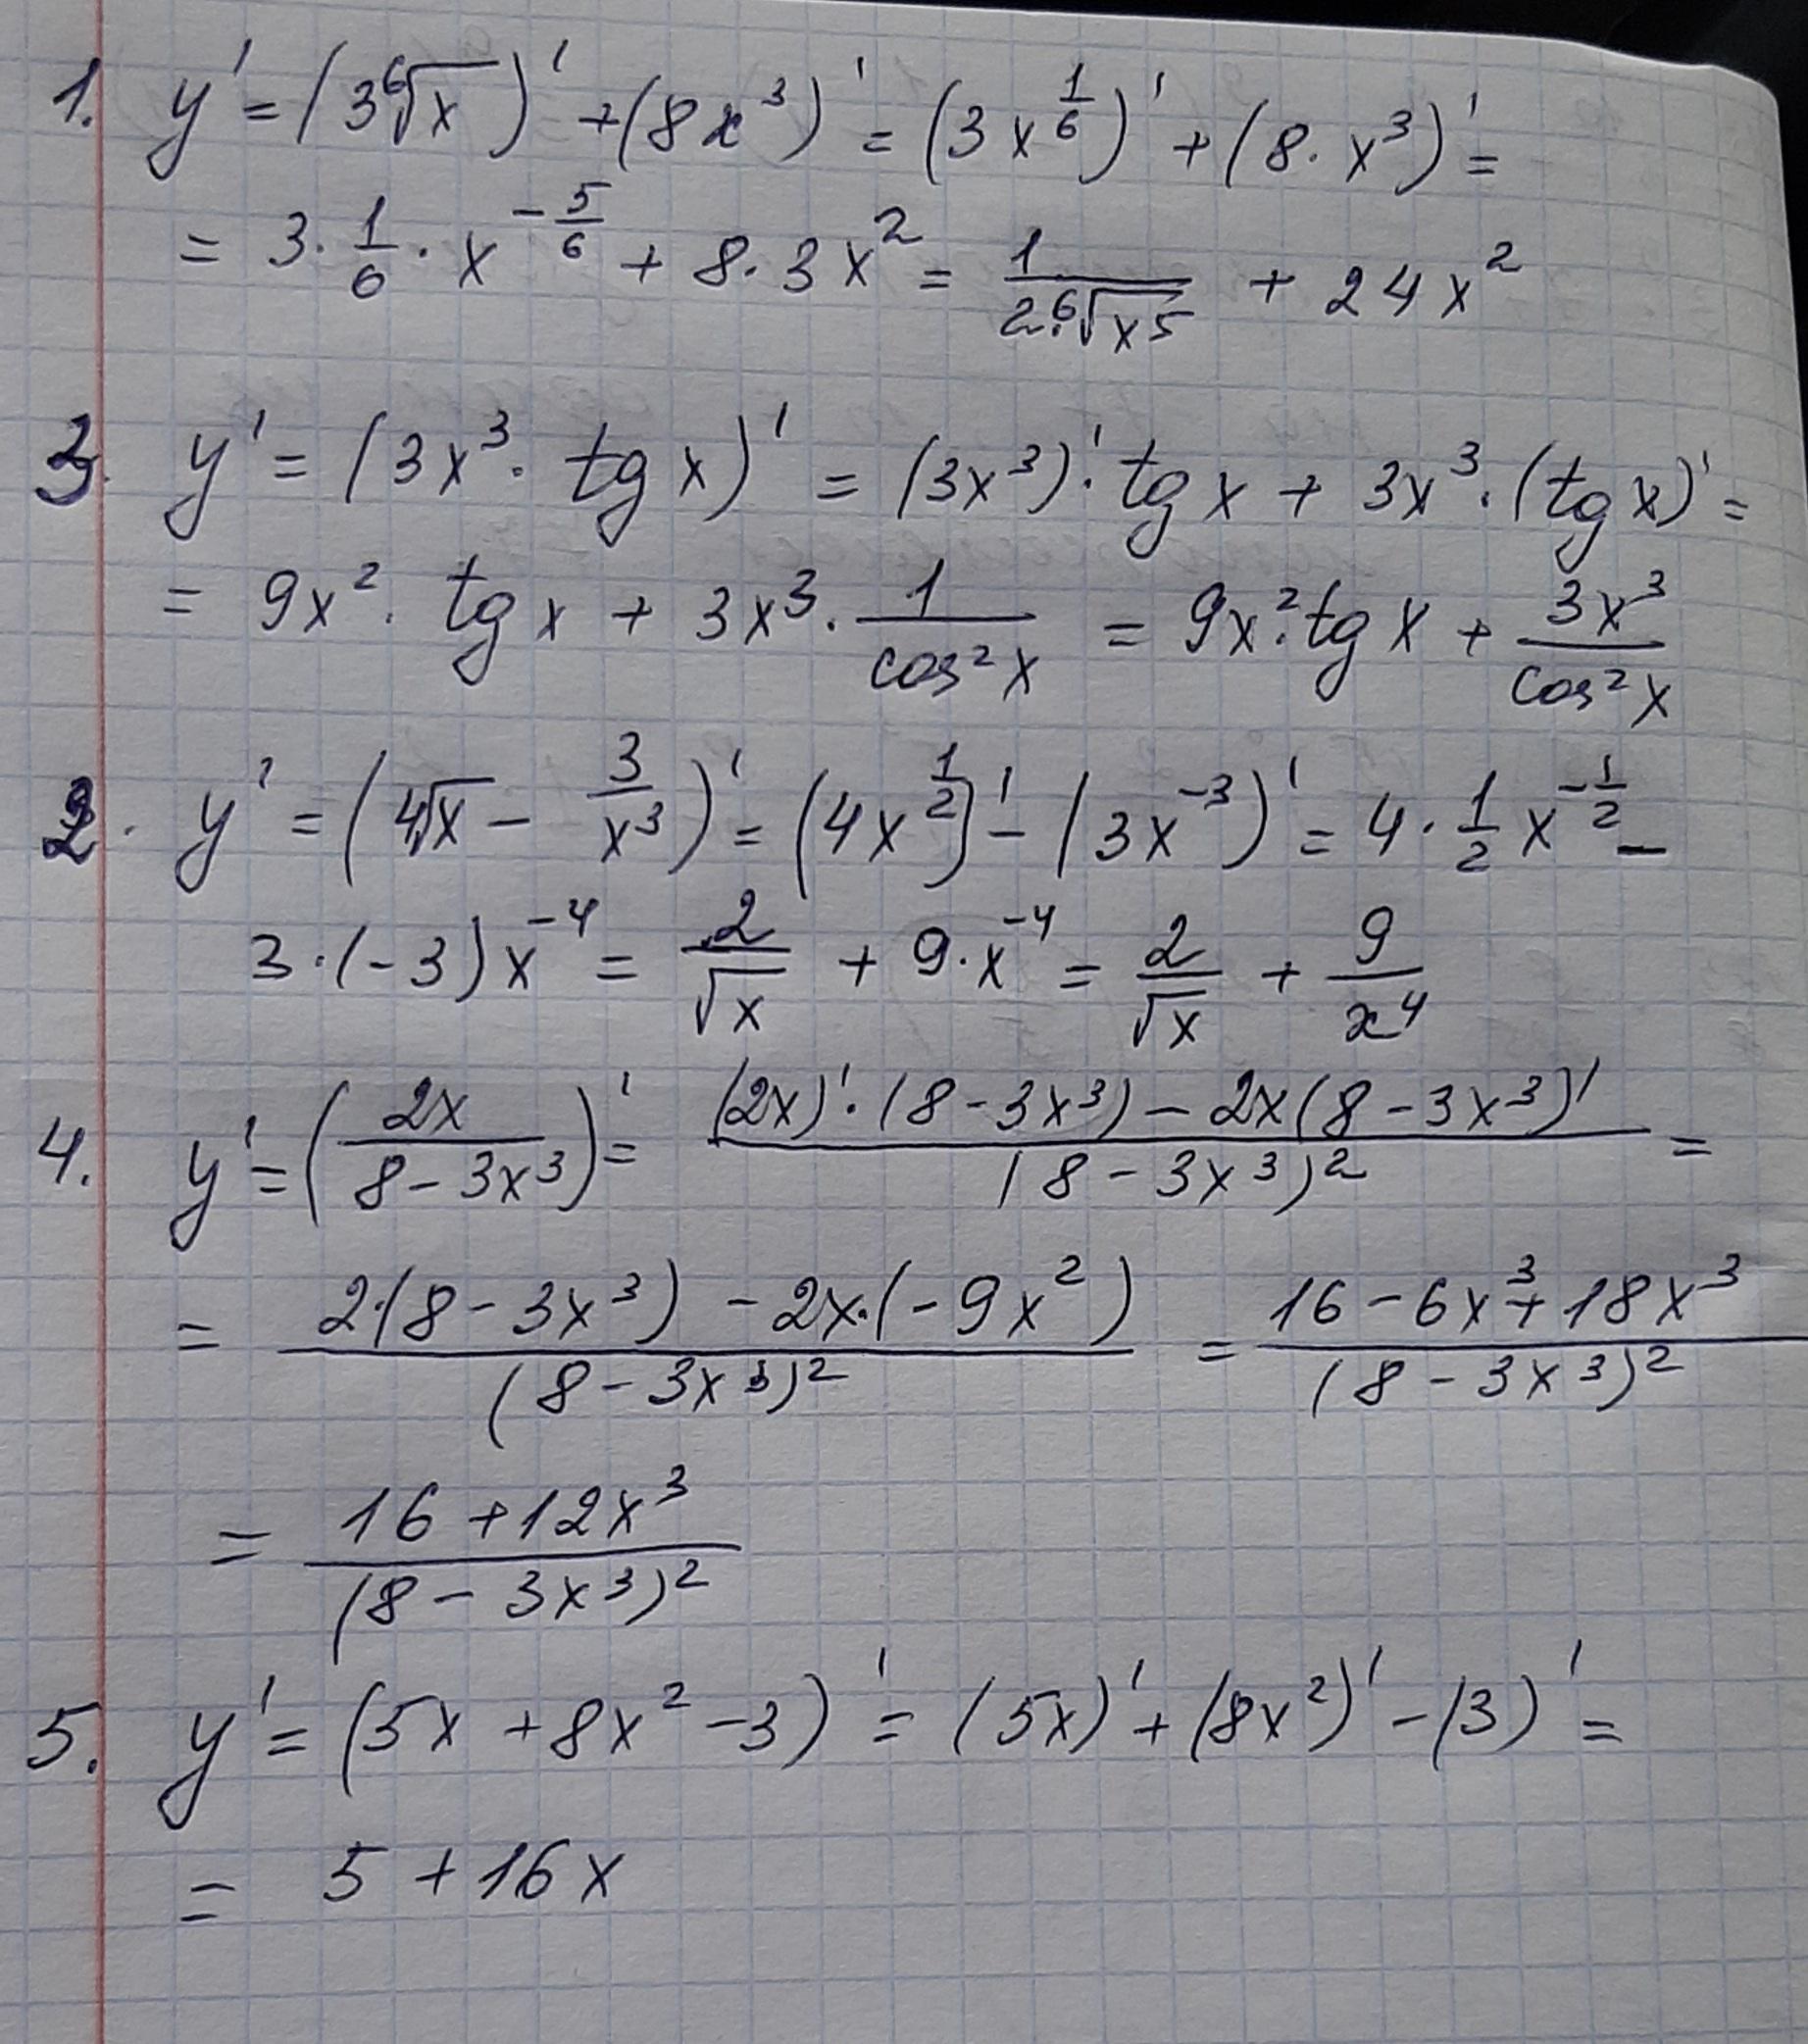 1. y' = (3⁶√x)' + (8x³)' = (3x^(1/6))' + (8·x³)' =
= 3·1/6·x^(-5/6) + 8·3x² = 1/(2·⁶√x5) + 24x²
3. y' = (3x³·tg x)' = (3x³)'·tg x + 3x³·(tg x)' =
= 9x²·tg x + 3x³·1/cos²x = 9x²·tg x + 3x³/cos²x
2. y' = (4√x − 3/x³)' = (4x^(1/2))' − (3x^(-3))' = 4·1/2 x^(-1/2) −
3·(−3)x^(-4) = 2/√x + 9·x^(-4) = 2/√x + 9/x⁴
4. y' = (2x/(8−3x³))' = ((2x)'·(8−3x³) − 2x(8−3x³)')/(8−3x³)² =
= (2·(8−3x³) − 2x·(−9x²))/(8−3x³)² = (16−6x³+18x³)/(8−3x³)²
= (16+12x³)/(8−3x³)²
5. y' = (5x + 8x² − 3)' = (5x)' + (8x²)' − (3)' =
= 5 + 16x